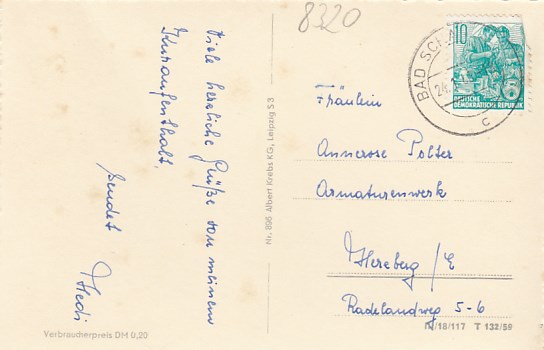 8320
Viele herzliche Grüße von meinem
Kuraufenthalt,
sendet
Hedi
Verbraucherpreis DM 0,20
Nr. 896 Albert Krebs KG, Leipzig S 3
10
DEUTSCHE
DEMOKRATISCHE REPUBLIK
BAD
24.
c
Fräulein
Annerose Polter
Armaturenwerk
Herzberg/E
Radelandweg 5-6
IV/18/117 T 132/59